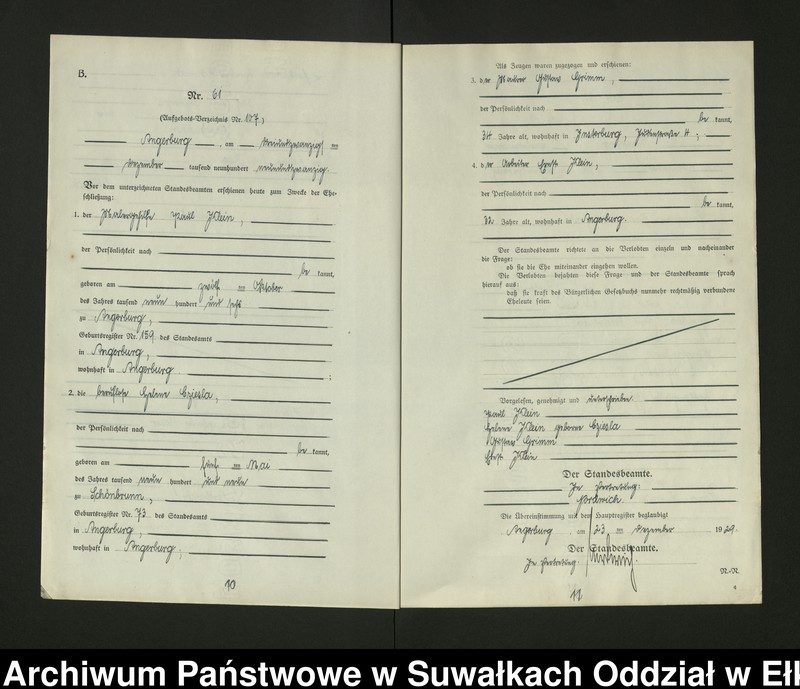 B.
Nr. 61
(Aufgebots-Verzeichnis Nr. 107)
Angerburg, am dreiundzwanzigsten
Dezember tausend neunhundert neunundzwanzig.
Vor dem unterzeichneten Standesbeamten erschienen heute zum Zwecke der Ehe-
schließung:
1. der Malergehilfe Paul Klein,
der Persönlichkeit nach
be kannt,
geboren am zwölften Oktober
des Jahres tausend neun hundert und sechs
zu Angerburg,
Geburtsregister Nr. 159 des Standesamts
in Angerburg,
wohnhaft in Angerburg
;
2. die berufslose Helene Cziesla,
der Persönlichkeit nach
be kannt,
geboren am fünften Mai
des Jahres tausend neun hundert und neun
zu Schönbrunn,
Geburtsregister Nr. 73 des Standesamts
in Angerburg,
wohnhaft in Angerburg,
10
Als Zeugen waren zugezogen und erschienen:
3. der Maurer Gustav Grimm,
der Persönlichkeit nach
be kannt,
34 Jahre alt, wohnhaft in Insterburg, 4,
4. der Arbeiter Klein,
der Persönlichkeit nach
be kannt,
Jahre alt, wohnhaft in Angerburg.
Der Standesbeamte richtete an die Verlobten einzeln und nacheinander
die Frage:
ob sie die Ehe miteinander eingehen wollen.
Die Verlobten bejahten diese Frage und der Standesbeamte sprach
hierauf aus:
daß sie kraft des Bürgerlichen Gesetzbuchs nunmehr rechtmäßig verbundene
Eheleute seien.
Vorgelesen, genehmigt und unterschrieben.
Paul Klein
Helene Klein geborene Cziesla
Gustav Grimm
Klein
Der Standesbeamte.
In Vertretung:
Die Übereinstimmung mit dem Hauptregister beglaubigt
Angerburg, am 23. Dezember 1929.
Der Standesbeamte.
In Vertretung:
11
Archiwum Państwowe w Suwałkach Oddział w Ełk